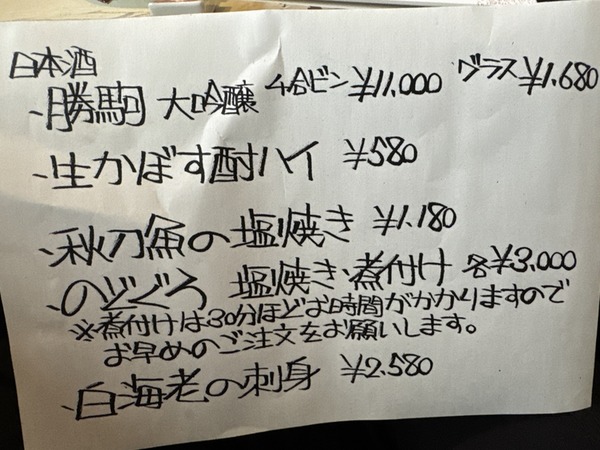 日本酒
、勝駒 大吟醸 4合ビン ¥11.000 グラス ¥1.680
、生かぼす酎ハイ ¥580
、秋刀魚の塩焼き ¥1.180
、のどぐろ 塩焼き・煮付け 各¥3.000
※煮付けは30分ほどお時間がかかりますので
お早めのご注文をお願いします。
、白海老の刺身 ¥2.580